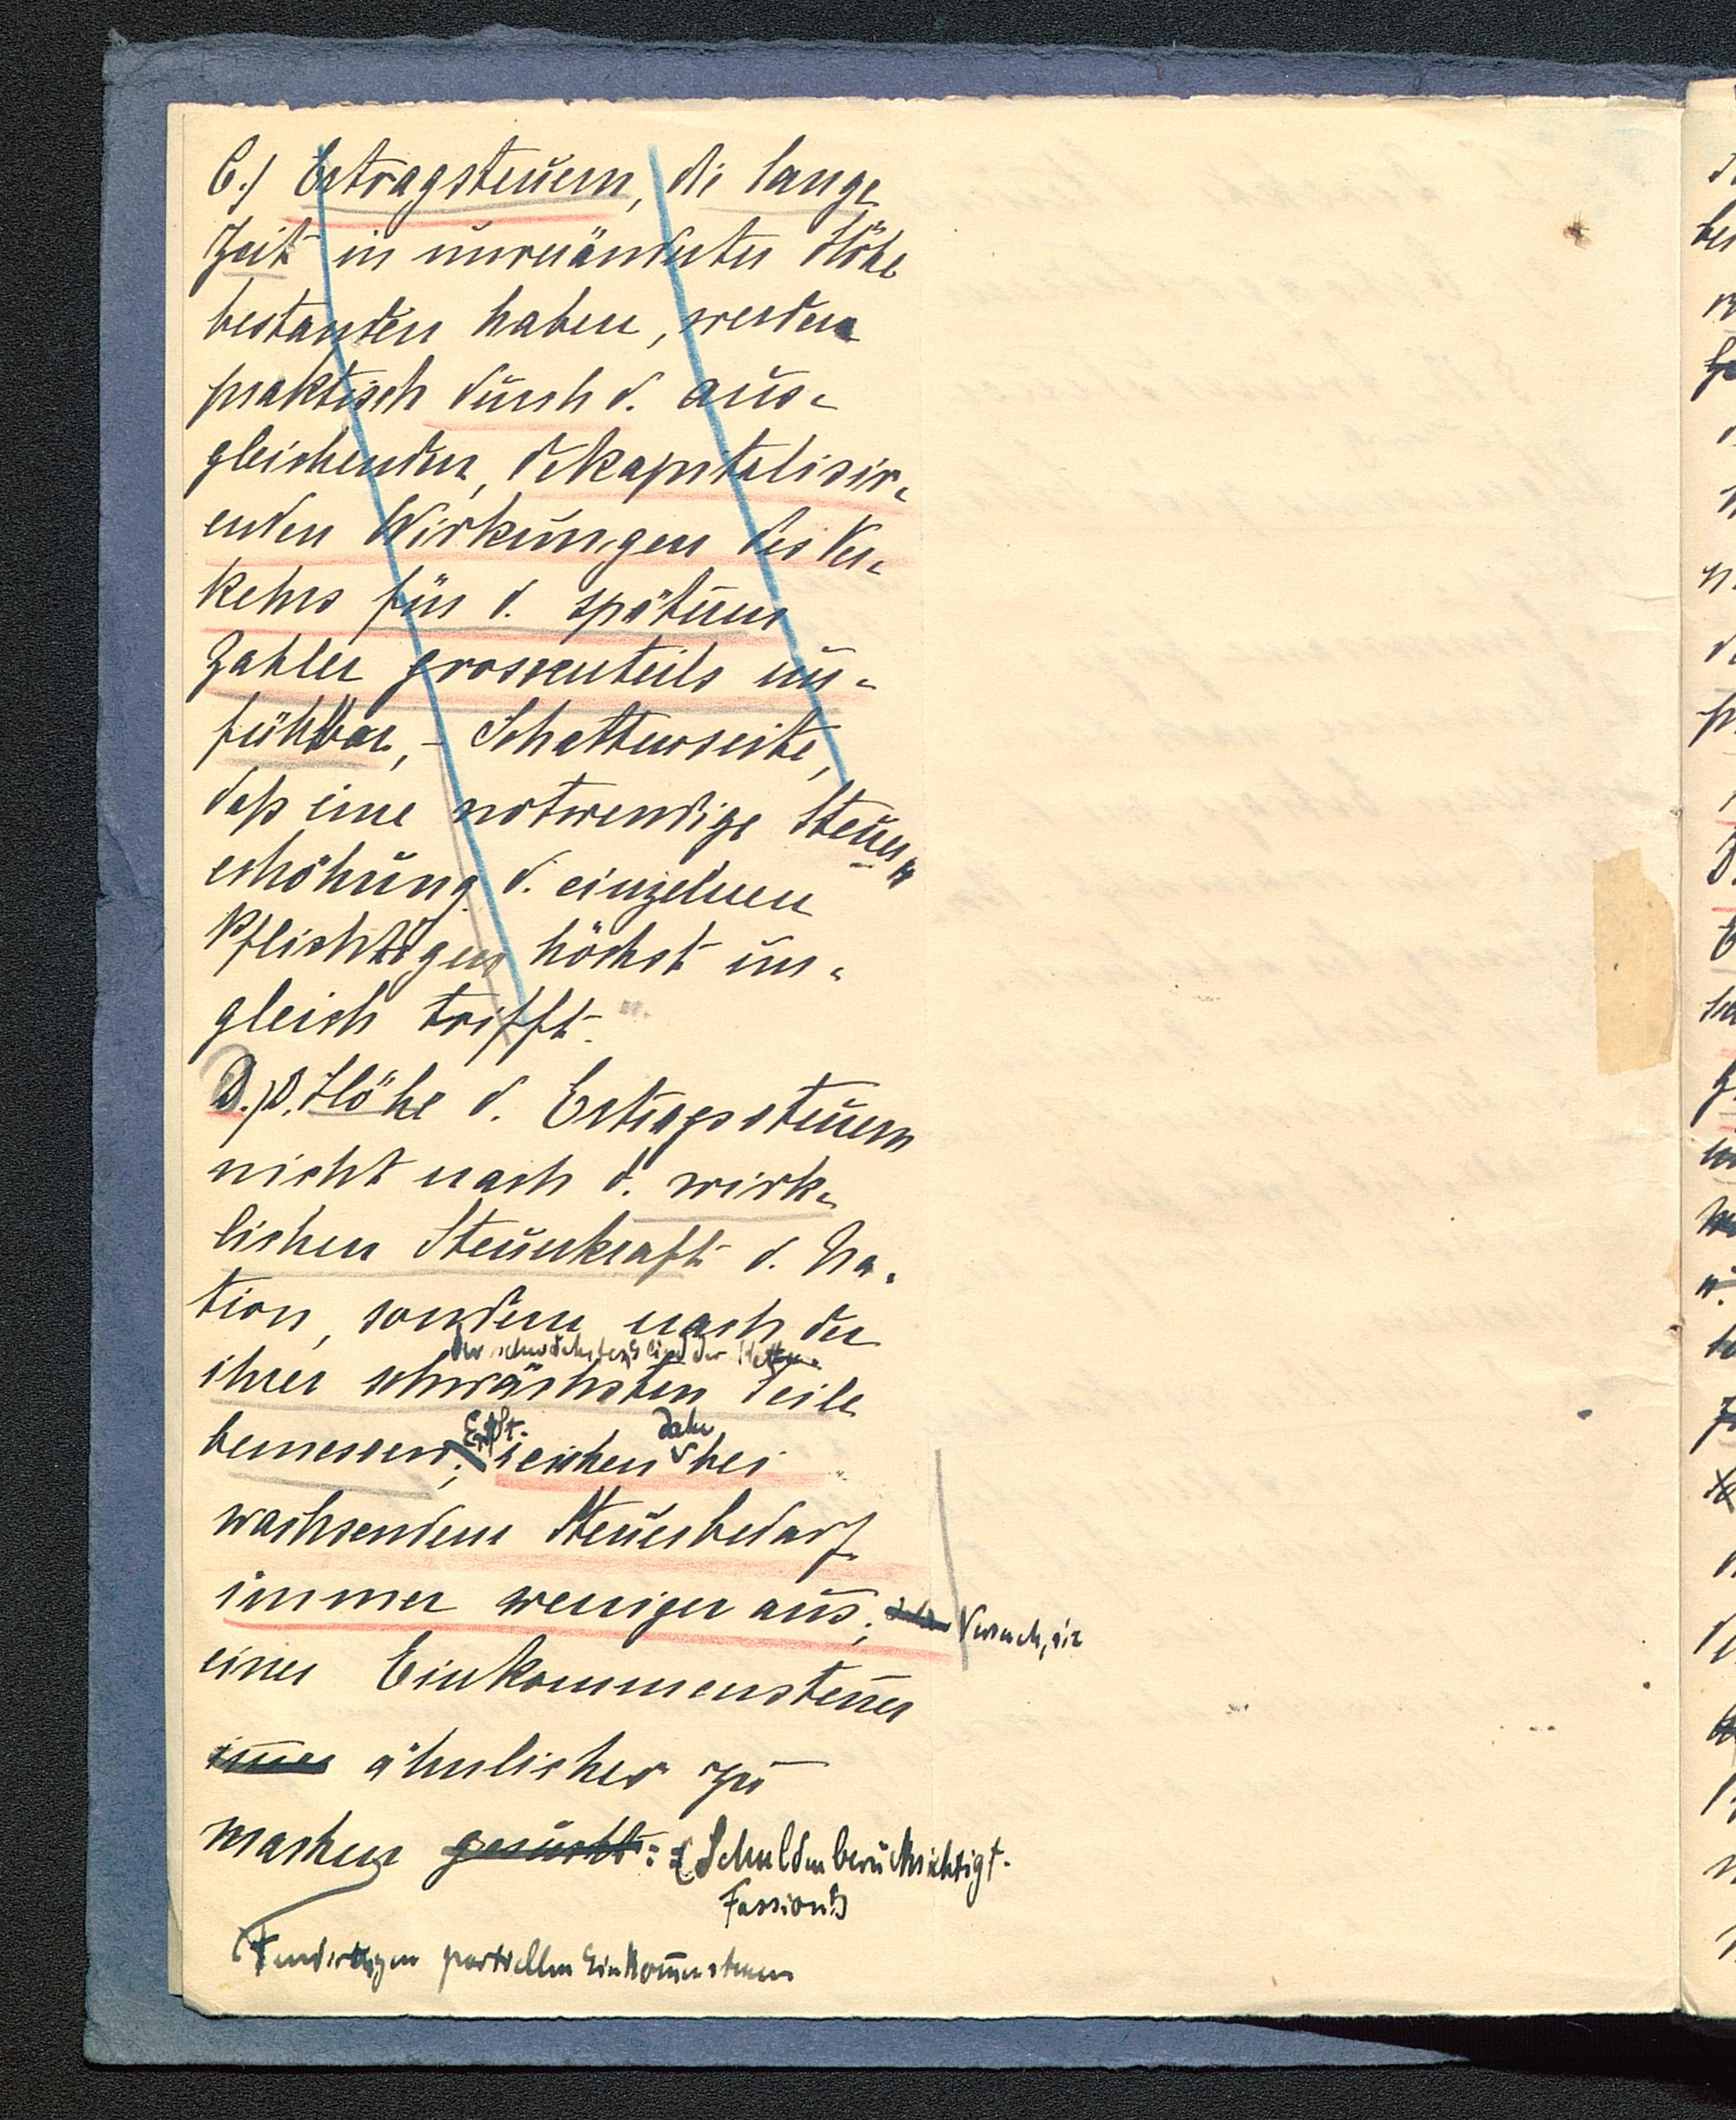 C.) Ertragsteuern, die lange
Zeit in unveränderter Höhe
bestanden haben, werden
praktisch durch d. aus-
gleichenden, dekapitalisir-
enden Wirkungen des Ver-
kehrs für d. späteren
Zahler grossenteils un-
fühlbar, - Schattenseite,
daß eine notwendige Steuer-
erhöhung d. einzelnen
Pflichtigen höchst un-
gleich trifft.
D.) D. Höhe d. Ertragssteuern
nicht nach d. wirk-
lichen Steuerkraft d. Na-
tion, sondern nach der
der schwächsten Glied der Kette
ihrer schwächsten Teile
bemessen; reichen daher bei
wachsendem Steuerbedarf
immer weniger aus; Versuch, sie
einer Einkommensteuer
immer ähnlicher zu
machen gesucht: (Schulden berücksichtigt.
Fassion)
partiellen Einkommensteuern